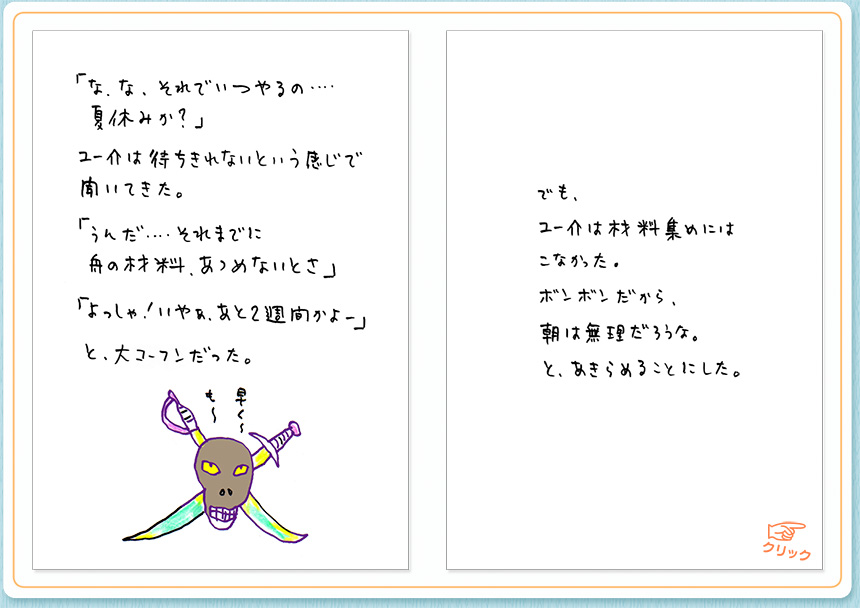 「な、な、それでいつやるの‥‥
夏休みか?」
ユー介は待ちきれないという感じで
聞いてきた。
「うんだ‥‥それまでに
舟の材料、あつめないとさ」
「よっしゃ!いやぁ、あと2週間かよー」
と、大コーフンだった。
早く〜
も〜
でも、
ユー介は材料集めには
こなかった。
ボンボンだから、
朝は無理だろうな。
と、あきらめることにした。
クリック